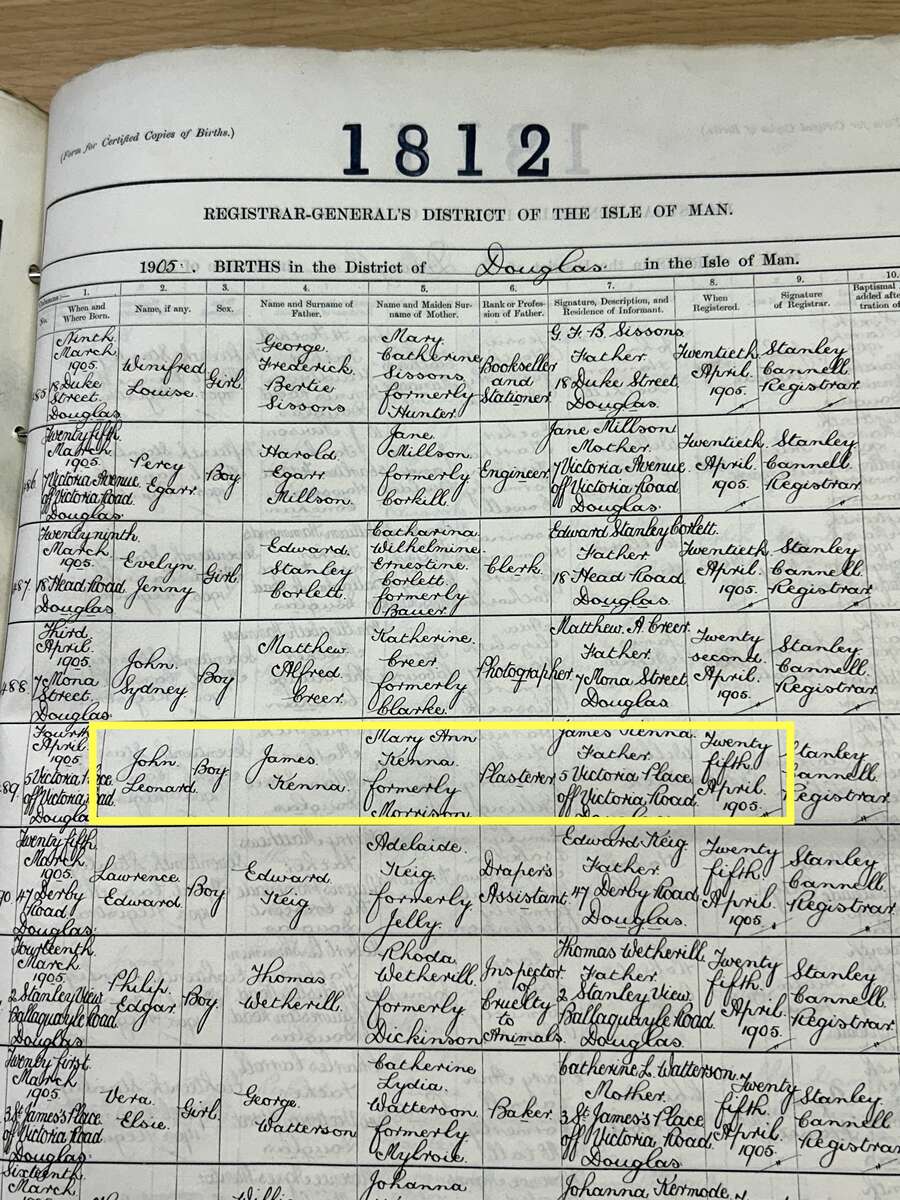 (Form for Certified Copies of Births.)
1812
REGISTRAR-GENERAL'S DISTRICT OF THE ISLE OF MAN.
1905. BIRTHS in the District of Douglas in the Isle of Man.
Columns:— 1. 2. 3. 4. 5. 6. 7. 8. 9. 10.
No. When and Where Born. Name, if any. Sex. Name and Surname of Father. Name and Maiden Surname of Mother. Rank or Profession of Father. Signature, Description, and Residence of Informant. When Registered. Signature of Registrar. Baptismal added after
485 Ninth March 1905. 18 Duke Street Douglas. Winifred Louise. Girl George Frederick Bertie Sissons Mary Catherine Sissons formerly Hunter. Bookseller and Stationer G. F. B. Sissons Father 18 Duke Street Douglas. Twentieth April 1905. Stanley Cannell Registrar
486 Twenty fifth March 1905. 7 Victoria Avenue off Victoria Road Douglas. Percy Egarr. Boy Harold Egarr Millson. Jane Millson formerly Corkill. Engineer Jane Millson Mother 7 Victoria Avenue off Victoria Road Douglas. Twentieth April 1905. Stanley Cannell Registrar
487. Twenty ninth March 1905. 18 Head Road Douglas Evelyn Jenny Girl. Edward Stanley Corlett. Catharina Wilhelmine Ernestine Corlett formerly Bauer. Clerk. Edward Stanley Corlett. Father 18 Head Road Douglas. Twentieth April 1905. Stanley Cannell Registrar
488 Third April 1905. 7 Mona Street. Douglas John Sydney. Boy Matthew Alfred Creer. Katherine Creer formerly Clarke. Photographer Matthew. A. Creer. Father. 7 Mona Street Douglas. Twenty second April 1905. Stanley Cannell Registrar
489. Fourth April 1905. 5 Victoria Place off Victoria Road. Douglas John Leonard. Boy James Kenna. Mary Ann Kenna formerly Morrison Plasterer James Kenna. Father 5 Victoria Place off Victoria Road Douglas Twenty fifth April 1905. Stanley Cannell Registrar
90. Twenty fifth March 1905. 47 Derby Road Douglas Lawrence Edward. Boy Edward Keig Adelaide Keig formerly Jelly. Draper's Assistant. Edward Keig Father 47 Derby Road Douglas. Twenty fifth April 1905. Stanley Cannell Registrar
Fourteenth March 1905 2 Stanley View Ballaquayle Road Douglas Philip Edgar. Boy. Thomas Wetherill. Rhoda Wetherill formerly Dickinson Inspector of Cruelty to Animals. Thomas Wetherill Father. 2 Stanley View. Ballaquayle Road. Douglas. Twenty fifth. April 1905. Stanley Cannell Registrar
Twenty first March 1905. 3 St James's Place off Victoria Road. Douglas Vera. Elsie. Girl. George Watterson Catherine Lydia. Watterson formerly Mylroie. Baker Catherine L. Watterson. Mother. 3 St James's Place off Victoria Road. Douglas. Twenty fifth April. 1905. Stanley Cannell Registrar
Sixteenth March Johanna Johanna Kermode.